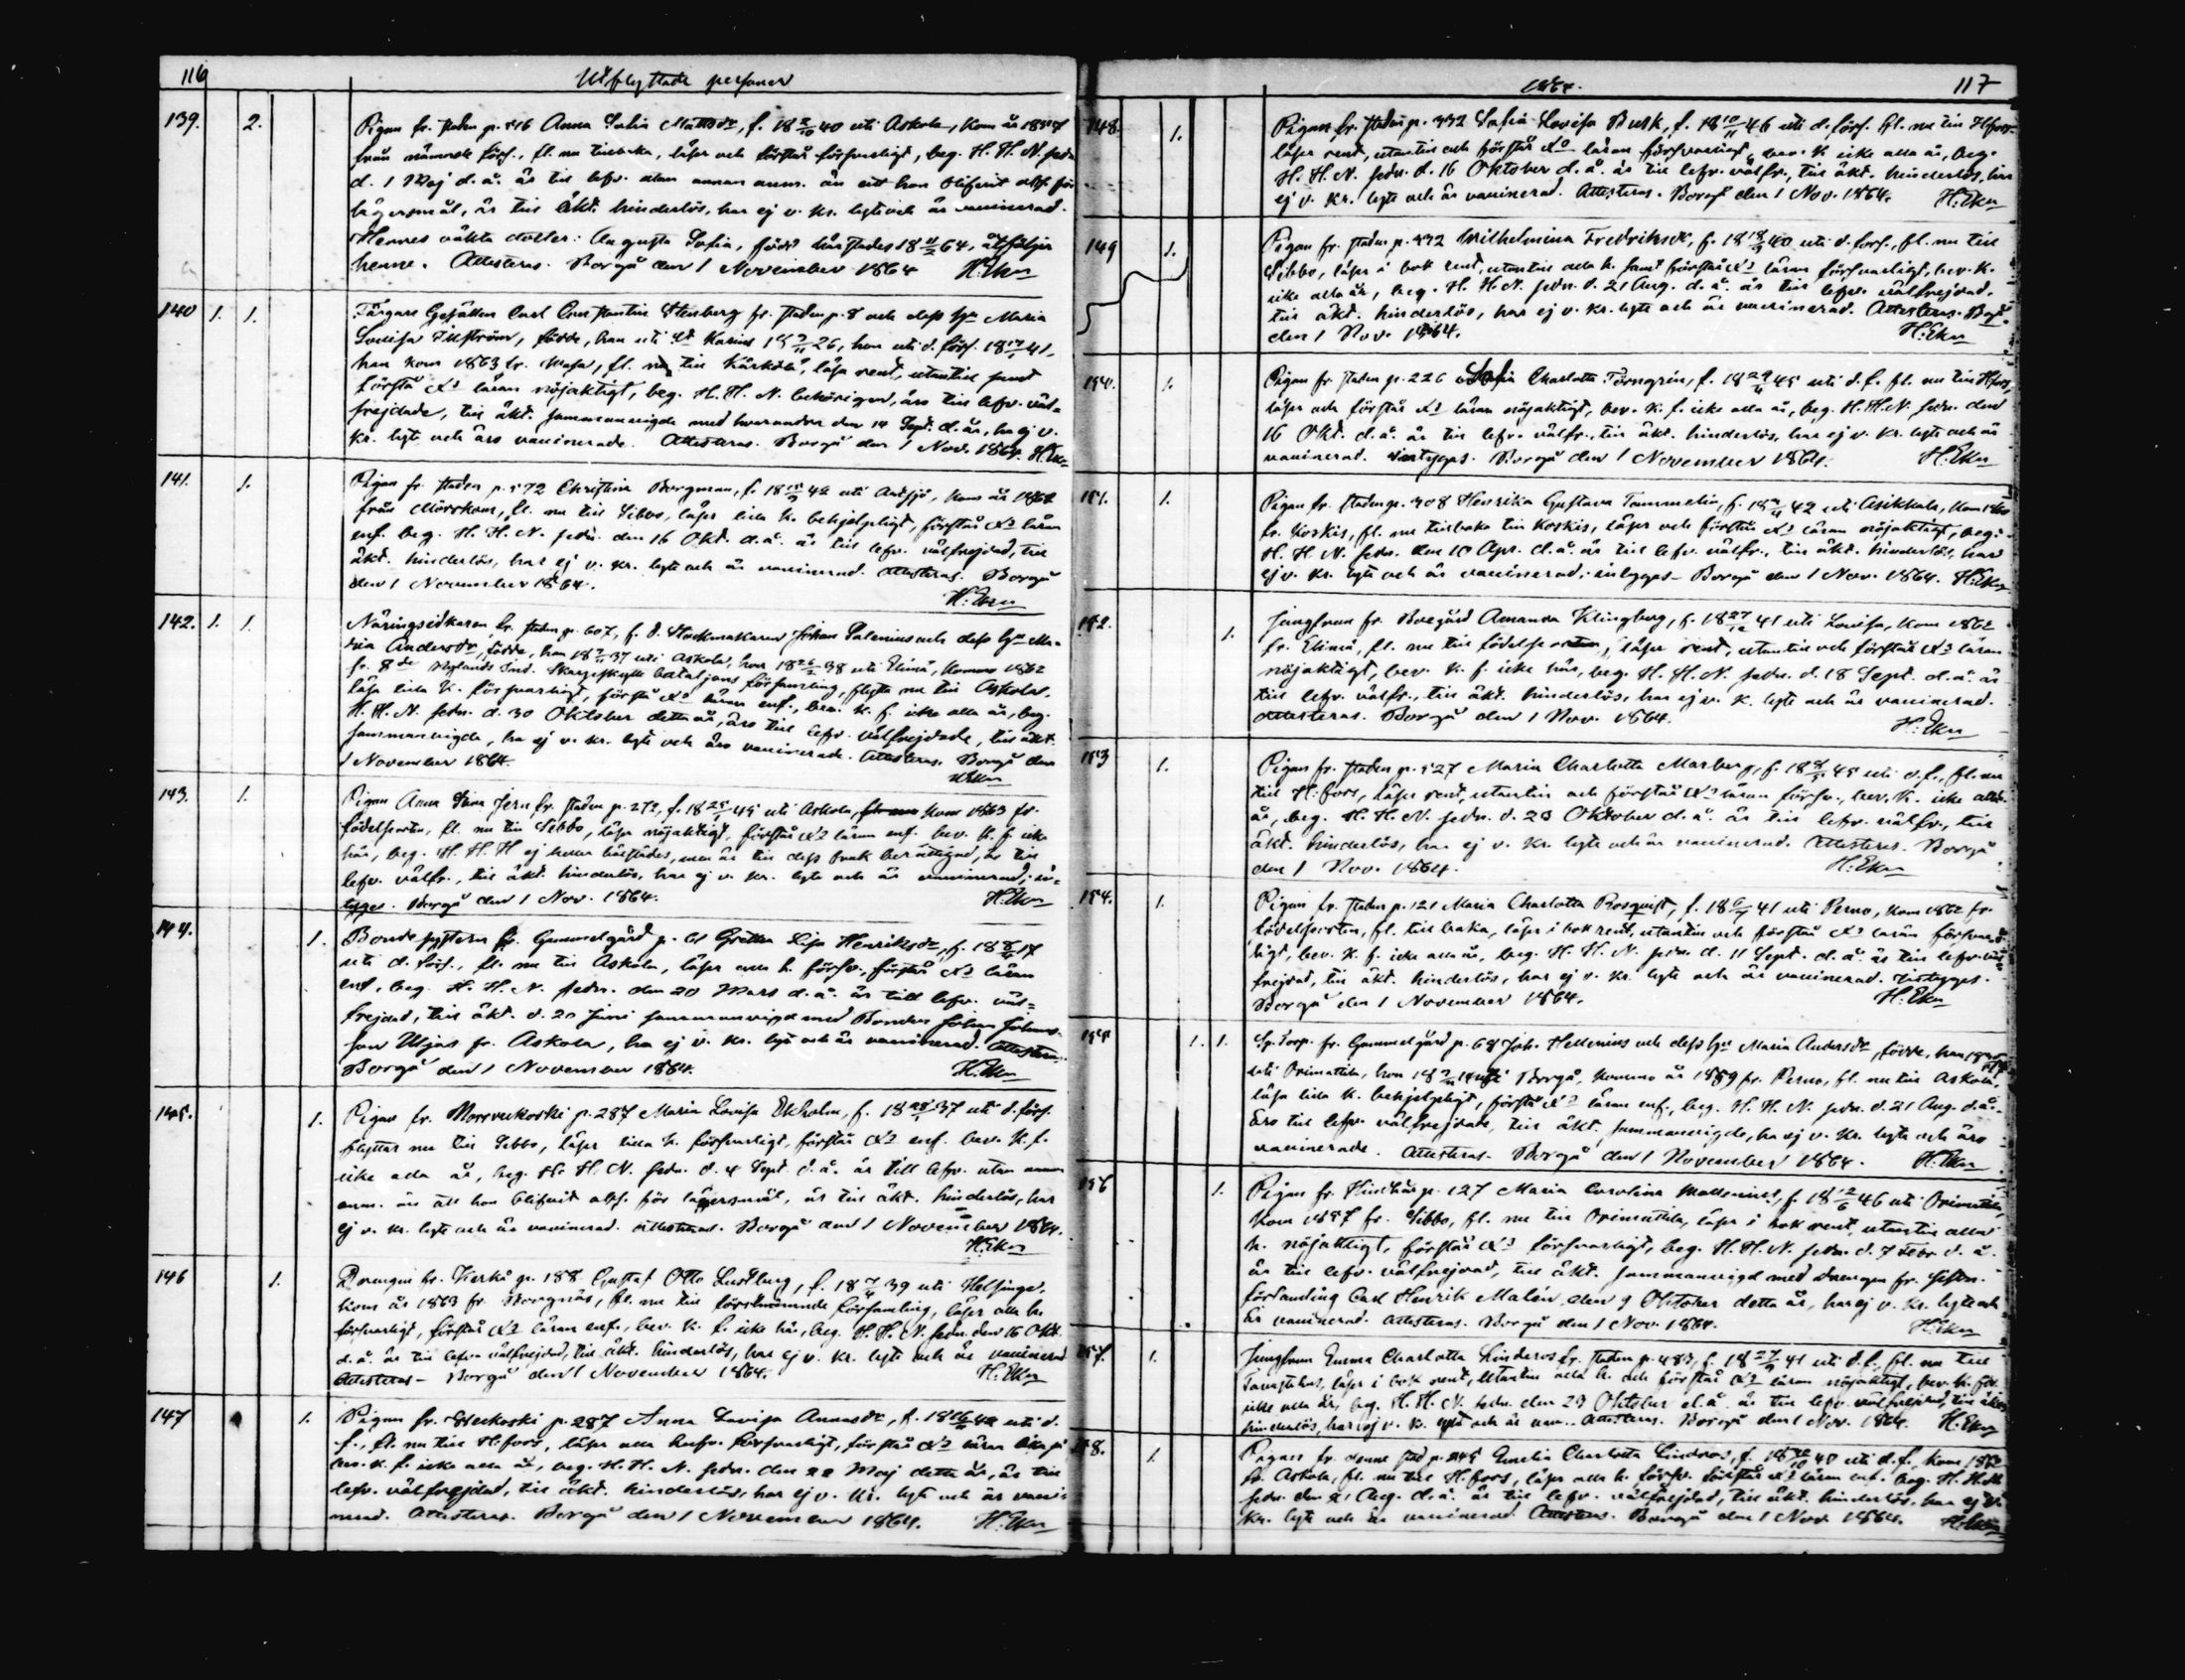 116 Utflyttade personer
139. 2. Pigan fr. staden p. 516 Anna Sofia Mattsdr, f. 18 40 uti Askola, kom år 1857
från nämnde förs., fl. nu tillbaka, läser och förstår försvarligt, beg. H. H. N. sedn
d. 1 Maj d. å. är till lefv. utan annan anm. än att hon blifvit abs. för
lägersmål, är till äkt. hinderlös, har ej v. kr. lyte och är vaccinerad.
Hennes oäkta dotter: Augusta Sofia, född härstädes 18 64, åtföljer
henne. Attesteras. Borgå den 1 November 1864 H. Ekn
140 1. 1. Färgare Gesällen Carl Constantin Stenberg fr. staden p. 8 och dess hu Maria
Lovisa, födde, han uti St Karins 18 26, hon uti d. förs. 18 41,
han kom 1863 fr. Wasa, fl. nu till Kärkölä, läsa rent, utantill samt
förstå Xi läran nöjaktigt, beg. H. H. N. behörigen, äro till lefv. väl-
frejdade, till äkt. sammanvigde med hvarandra den 14 Sept. d. år, ha ej v.
kr. lyte och äro vaccinerade. Attesteras. Borgå den 1 Nov. 1864. H. Ekn
141. 1. Pigan fr. staden p. 572 Christina Borgman, f. 18 42 uti Artsjö, kom år 1862
från Mörskom, fl. nu till Sibbo, läser lilla k. behjelpligt, förstår Xi läran
enf. beg. H. H. N. sedn. den 16 Okt. d. å. är till lefv. välfrejdad, till
äkt. hinderlös, har ej v. kr. lyte och är vaccinerad. Attesteras. Borgå
den 1 November 1864. H. Ekn
142. 1. 1. Näringsidkaren fr. staden p. 607, f. d. Stockmakaren Johan Palenius och dess hu Ma-
ria Andersdr, födde, han 18 37 uti Askola, hon 18 38 uti Elimä, komne 1862
fr. 8de Nylands Ind. Skarpskytte bataljons församling, flytta nu till Askola,
läsa lilla k. försvarligt, förstå Xi läran enf., bev. k. f. icke alla år, beg.
H. H. N. sedn. d. 30 Oktober detta år, äro till lefv. välfrejdade, till äkt.
sammanvigde, ha ej v. kr. lyte och äro vaccinerade. Attesteras. Borgå den
1 November 1864. H. Ekn
143. 1. Pigan Anna Stina Jern fr. staden p. 272, f. 18 45 uti Askola, kom 1863 fr.
födelseorten, fl. nu till Sibbo, läser nöjaktigt, förstår Xi läran enf. bev. k. f. icke
här, beg. H. H. N ej heller härstädes, men är till dess bruk berättigad, är till
lefv. välfr., till äkt. hinderlös, har ej v. kr. lyte och är vaccinerad; in-
tygas. Borgå den 1 Nov. 1864. H. Ekn
144. 1. Bonde systern fr. Gammelgård p. 61 Gretha Lisa Henriksdr, f. 18 17
uti d. förs., fl. nu till Askola, läser alla k. försv., förstår Xi läran
enf., beg. H. H. N. sedn. den 20 Mars d. å. är till lefv. väl-
frejdad, till äkt. d. 20 Juni sammanvigd med Bonden Johan Johans-
son Uljas fr. Askola, ha ej v. kr. lyte och är vaccinerad. Attesteras.
Borgå den 1 November 1864. H. Ekn
145. 1. Pigan fr. p. 287 Maria Lovisa Ekholm, f. 18 37 uti d. förs.
flyttar nu till Sibbo, läser lilla k. försvarligt, förstår Xi enf. bev. k. f.
icke alla år, beg. H. H. N. sedn. d. 4 Sept. d. å. är till lefv. utan annan
anm. än att hon blifvit abs. för lägersmål, är till äkt. hinderlös, har
ej v. kr. lyte och är vaccinerad. Attesteras. Borgå den 1 November 1864.
H. Ekn
146 1. Drengen fr. Kerko p. 188 Gustaf Otto Lustberg, f. 18 39 uti Helsinge,
kom år 1863 fr. Borgnäs, fl. nu till förstnämnde församling, läser alla k.
försvarligt, förstår Xi läran enf., bev. k. f. icke här, beg. H. H. N. sedn. den 16 Okt.
d. å. är till lefv. välfrejdad, till äkt. hinderlös, har ej v. kr. lyte och är vaccinerad
Attesteras - Borgå den 1 November 1864. H. Ekn
147 1. Pigan fr. p. 287 Anna Lovisa Annasdr, f. 18 42 uti d.
f., fl. nu till H:fors, läser alla försvarligt, förstår Xi läran
bev. k. f. icke alla år, beg. H. H. N. sedn. den 22 Maj detta år, är till
lefv. välfrejdad, till äkt. hinderlös, har ej v. kr. lyte och är vacci-
nerad. Attesteras. Borgå den 1 November 1864. H. Ekn
1864. 117
148. 1. Pigan fr. staden p. 332 Sofia Lovisa Busk, f. 18 46 uti d. förs. fl. nu till H:fors
läser rent, utantill och förstår Xi läran försvarligt, bev. k icke alla år, beg.
H. H. N. sedn. d. 16 Oktober d. å. är till lefv. välfr., till äkt. hinderlös, har
ej v. kr. lyte och är vaccinerad. Attesteras. Borgå den 1 Nov. 1864. H. Ekn
149 1. Pigan fr. staden p. 332 Wilhelmina Fredriksdr, f. 18 40 uti d. förs., fl. nu till
Sibbo, läser i bok rent, utantill alla k. samt förstår Xi läran försvarligt, bev. k.
icke alla år, beg. H. H. N. sedn. d. 21 Aug. d. å. är till lefv. välfrejdad,
till äkt. hinderlös, har ej v. kr. lyte och är vaccinerad. Attesteras. Borgå
den 1 Nov. 1864. H. Ekn
150. 1. Pigan fr. staden p. 226 Sofia Charlotta Törngrén, f. 18 45 uti d. f. fl. nu till H:fors,
läser och förstår Xi läran nöjaktigt, bev. k. f. icke alla år, beg. H. H. N. sedn. den
16 Okt. d. å. är till lefv. välfr., till äkt. hinderlös, har ej v. kr. lyte och är
vaccinerad. intygas. Borgå den 1 November 1864. H. Ekn
151. 1. Pigan fr. staden p. 308 Henrika Gustava Tammelin, f. 18 42 uti Asikkala, kom
fr. Koskis, fl. nu tillbaka till Koskis, läser och förstår Xi läran nöjaktigt, beg.
H. H. N. sedn. den 10 Apr. d. å. är till lefv. välfr., till äkt. hinderlös, har
ej v. kr. lyte och är vaccinerad; intygas - Borgå den 1 Nov. 1864. H. Ekn
152. 1. Jungfrun fr. Boegård Amanda Klingberg, f. 18 27/12 41 uti Lovisa, kom 1862
fr. Elimä, fl. nu till födelseorten, läser rent, utantill och förstår Xi läran
nöjaktigt, bev. k. f. icke här, beg. H. H. N. sedn. d. 18 Sept. d. å. är
till lefv. välfr., till äkt. hinderlös, har ej v. k. lyte och är vaccinerad.
Attesteras. Borgå den 1 Nov. 1864. H. Ekn
153 1. Pigan fr. staden p. 527 Maria Charlotta Marberg, f. 18 45 uti d. f., fl. nu
till H:fors, läser rent, utantill och förstår Xi läran försv., bev. k. icke alla
år, beg. H. H. N. sedn. d. 23 Oktober d. å. är till lefv. välfr., till
äkt. hinderlös, har ej v. kr. lyte och är vaccinerad. Attesteras. Borgå
den 1 Nov. 1864. H. Ekn
154. 1. Pigan fr. staden p. 121 Maria Charlotta Rosqvist, f. 18 41 uti Perno, kom 1862 fr.
födelseorten, fl. tillbaka, läser i bok rent, utantill och förstår Xi läran försvar-
ligt, bev. k. f. icke alla år, beg. H. H. N. sedn. d. 11 Sept. d. å. är till lefv. väl-
frejdad, till äkt. hinderlös, har ej v. kr. lyte och är vaccinerad. Intygas.
Borgå den 1 November 1864. H. Ekn
155 1. 1. Sp. Torp. fr. Gammelgård p. 68 Joh. Hellenius och dess hu Maria Andersdr, födde, han
uti Orimattila, hon uti Borgå, komne år 1859 fr. Perno, fl. nu till Askola,
läsa lilla k. behjelpligt, förstå Xi läran enf., beg. H. H. N. sedn. d. 21 Aug. d. å.
äro till lefv. välfrejdade, till äkt. sammanvigde, ha ej v. kr. lyte och äro
vaccinerade. Attesteras. Borgå den 1 November 1864. H. Ekn
156 1. Pigan fr. Hindhår p. 127 Maria Carolina Mattsdr, f. 18 46 uti Orimattila,
kom 1857 fr. Sibbo, fl. nu till Orimattila, läser i bok rent, utantill alla
k. nöjaktigt, förstår Xi försvarligt, beg. H. H. N. sedn. d. 7 Febr. d. å.
är till lefv. välfrejdad, till äkt. sammanvigd med drengen fr.
församling Carl Henrik Malén den 9 Oktober detta år, har ej v. kr. lyte och
är vaccinerad. Attesteras. Borgå den 1 Nov. 1864. H. Ekn
157. 1. Jungfrun Emma Charlotta Linderos fr. staden p. 483, f. 18 41 uti d. f., fl. nu till
Tavastehus, läser i bok rent, utantill alla k. och förstår Xi läran nöjaktigt, bev. k. för
icke alla år, beg. H. H. N. sedn. den 23 Oktober d. å. är till lefv. välfrejdad, till äkt.
hinderlös, har ej v. k. lyte och är vacc. Attesteras. Borgå den 1 Nov. 1864. H. Ekn
158. 1. Pigan fr. denne stad p. 245 Emelia Charlotta Lindroos, f. 18 40 uti d. f., kom
fr. Askola, fl. nu till H:fors, läser alla k. försv. förstår Xi läran enf. beg. H. H. N.
sedn. den 21 Aug. d. å. är till lefv. välfrejdad, till äkt. hinderlös, har ej v.
kr. lyte och är vaccinerad. Attesteras. Borgå den 1 Nov. 1864. H. Ekn